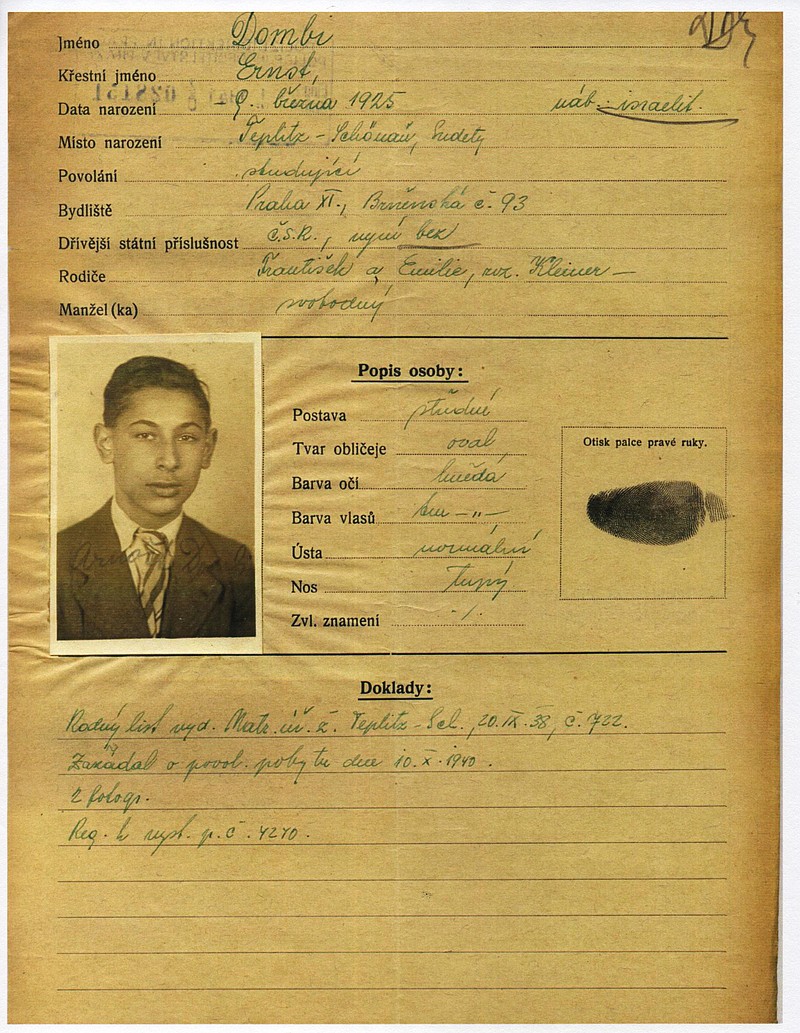 Jméno Dombi
Křestní jméno Ernst,
Data narození 9. března 1925 náb. israelit.
Místo narození Teplitz-Schönau, Sudety
Povolání studující
Bydliště Praha XI., Brněnská č. 93
Dřívější státní příslušnost č.s.R., nyní bez
Rodiče František a Emilie, roz. Kleiner —
Manžel (ka) svobodný
Popis osoby:
Postava
Tvar obličeje oval
Barva očí hnědá
Barva vlasů tm — „ —
Ústa normální
Nos tupý
Zvl. znamení ·/.
Otisk palce pravé ruky.
Doklady:
Rodný list vyd. Matr. úř. v. Teplitz-Sch., 20.IX.38, č. 722.
Zažádal o povol. pobytu dne 10.X.1940.
2 fotogr.
Reg. k vyst. p. č. 4240.